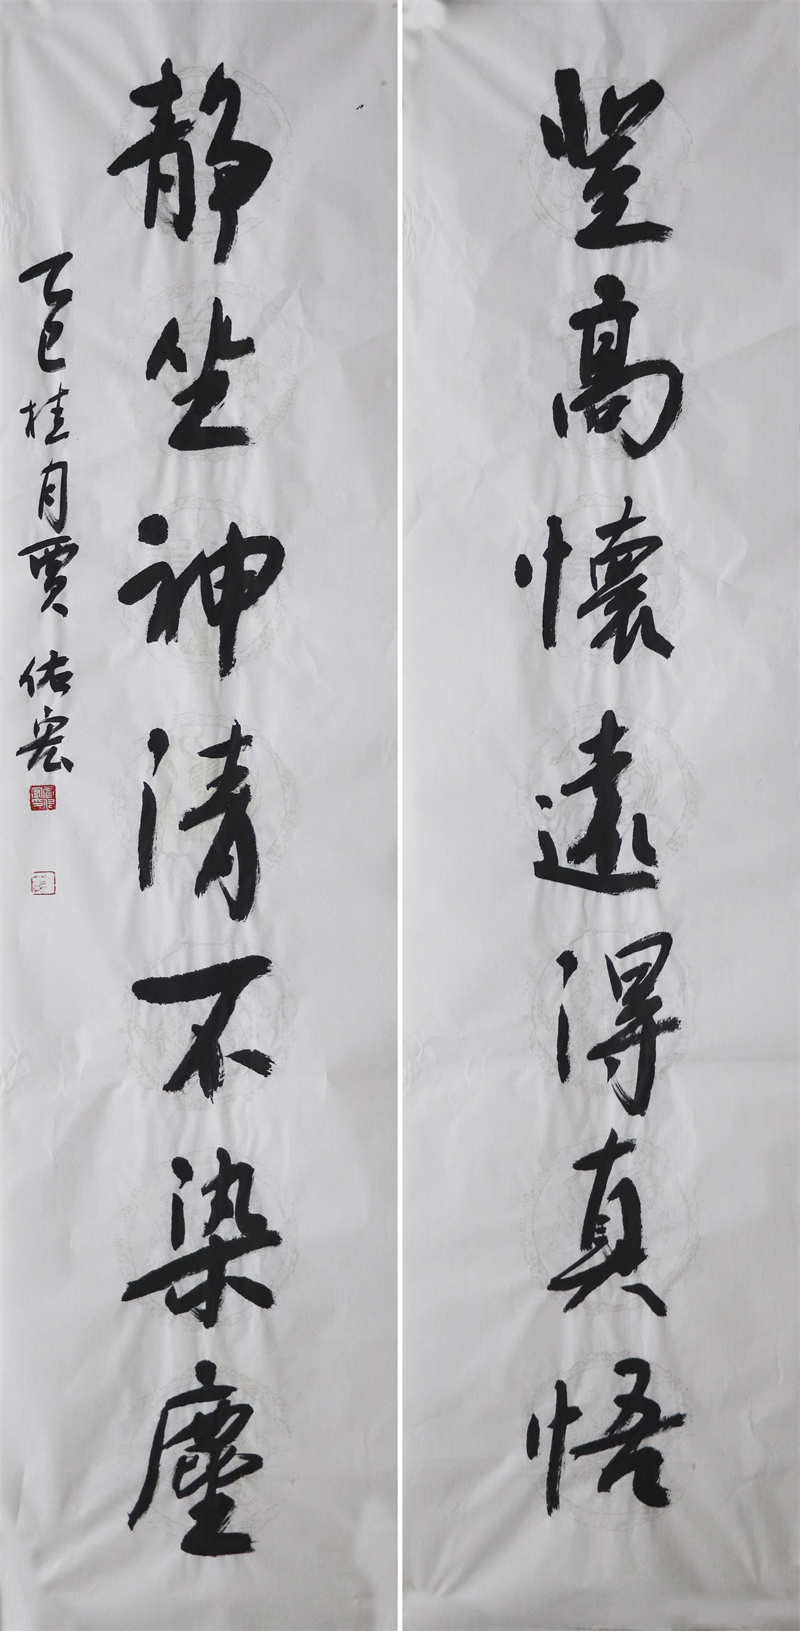 登高懷遠得真悟
静坐神清不染塵
乙巳桂月賈佑宏